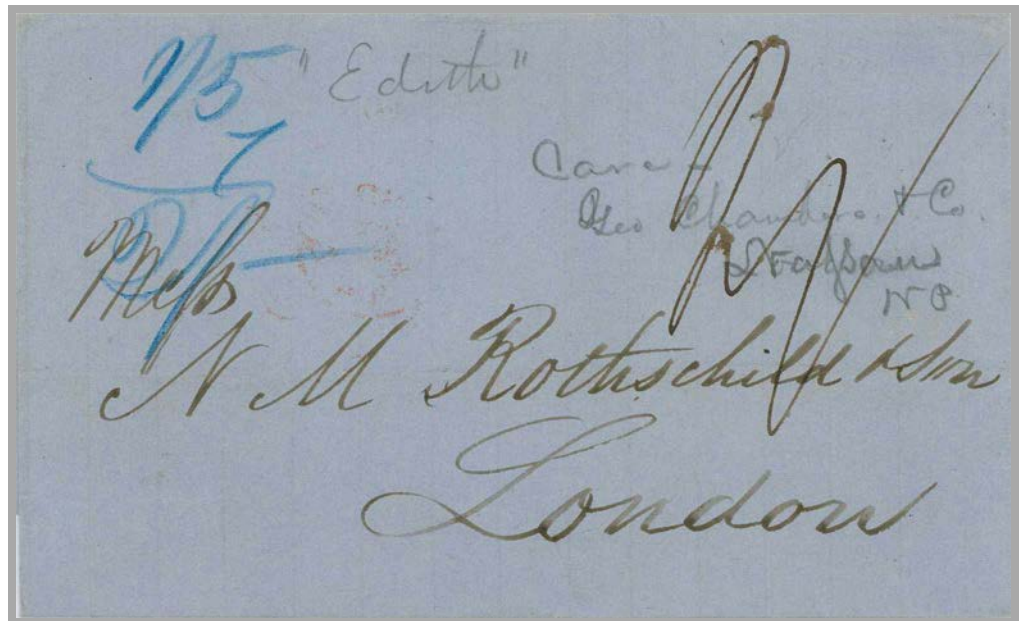 1/5
"Edith"
7
Care
Geo Chambers & Co.
N P
Messs
N M Rothschild & Son
London